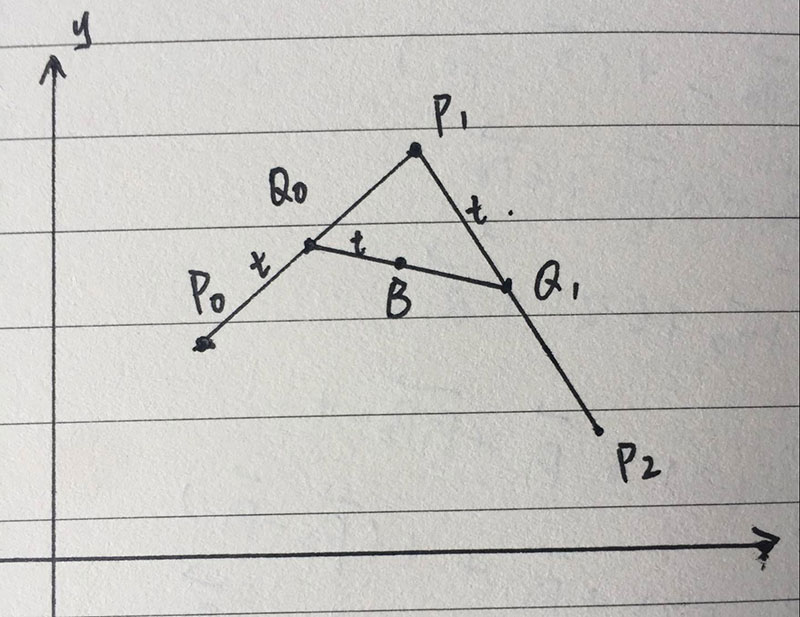 y
P1
Q0
t
t
t
P0
B
Q1
P2